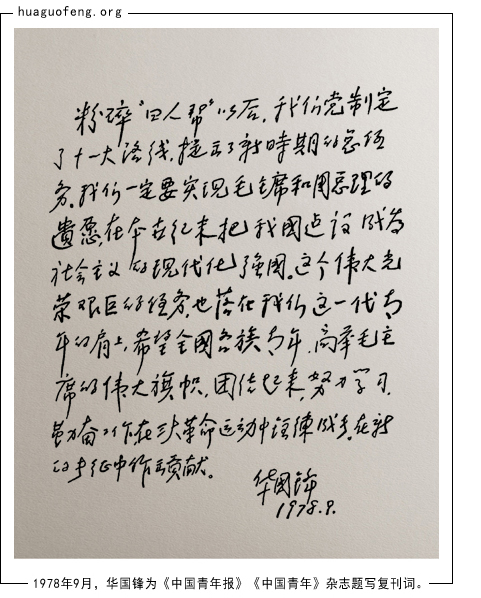 huaguofeng.org
粉碎“四人帮”以后，我们党制定
了十一大路线，提出了新時期的总任
务。我们一定要实现毛主席和周总理的
遺愿，在本世纪末把我國建设成为
社会主义的现代化强國。这个伟大光
荣艰巨的任务，也落在我们这一代青
年的肩上。希望全國各族青年，高举毛主
席的伟大旗帜，团结起来，努力学习，
勤奋工作，在三大革命运动中锻煉成长，在新
的长征中作出贡献。
华國锋
1978.9.
1978年9月，华国锋为《中国青年报》《中国青年》杂志题写复刊词。